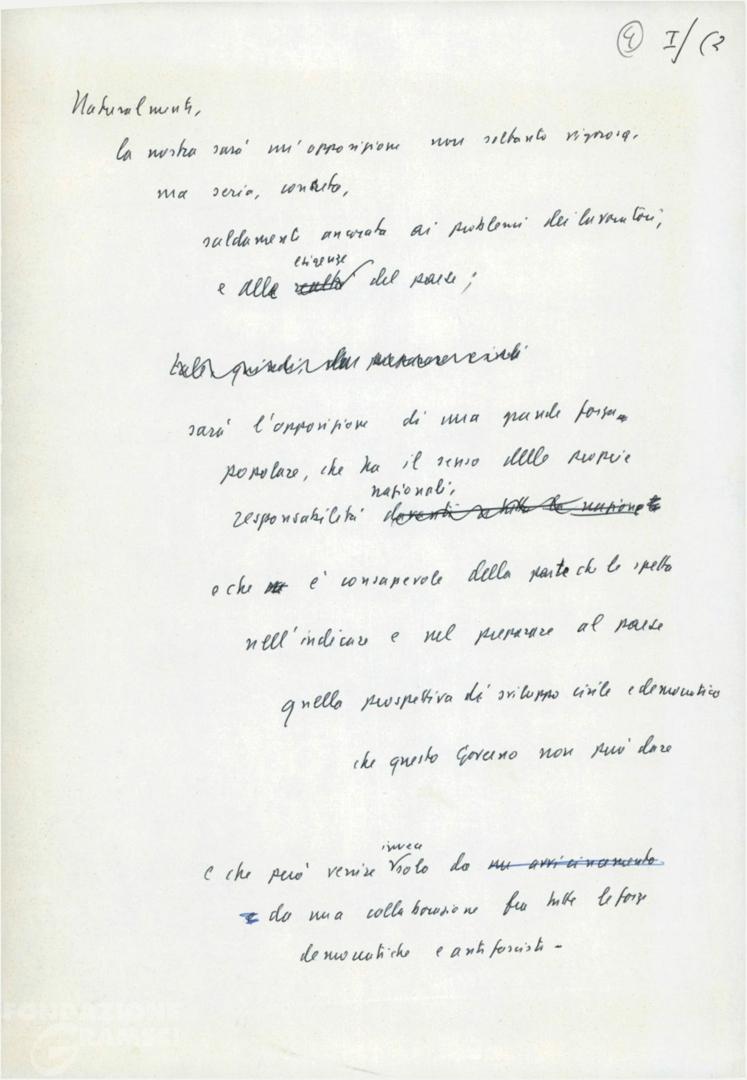 ④ I/
Naturalmente,
la nostra sarà un'opposizione non soltanto rigorosa,
ma seria, concreta,
saldamente ancorata ai problemi dei lavoratori,
esigenze
e alle realtà del paese;
quindi
sarà l'opposizione di una grande forza
popolare, che ha il senso delle proprie
nazionali,
responsabilità davanti a tutta la nazione
e che è consapevole della parte che le spetta
nell'indicare e nel preparare al paese
quella prospettiva di sviluppo civile e democratico
che questo Governo non può dare
invece
e che può venire solo da un avvicinamento
e da una collaborazione fra tutte le forze
democratiche e antifasciste -
FONDAZIONE
GRAMSCI